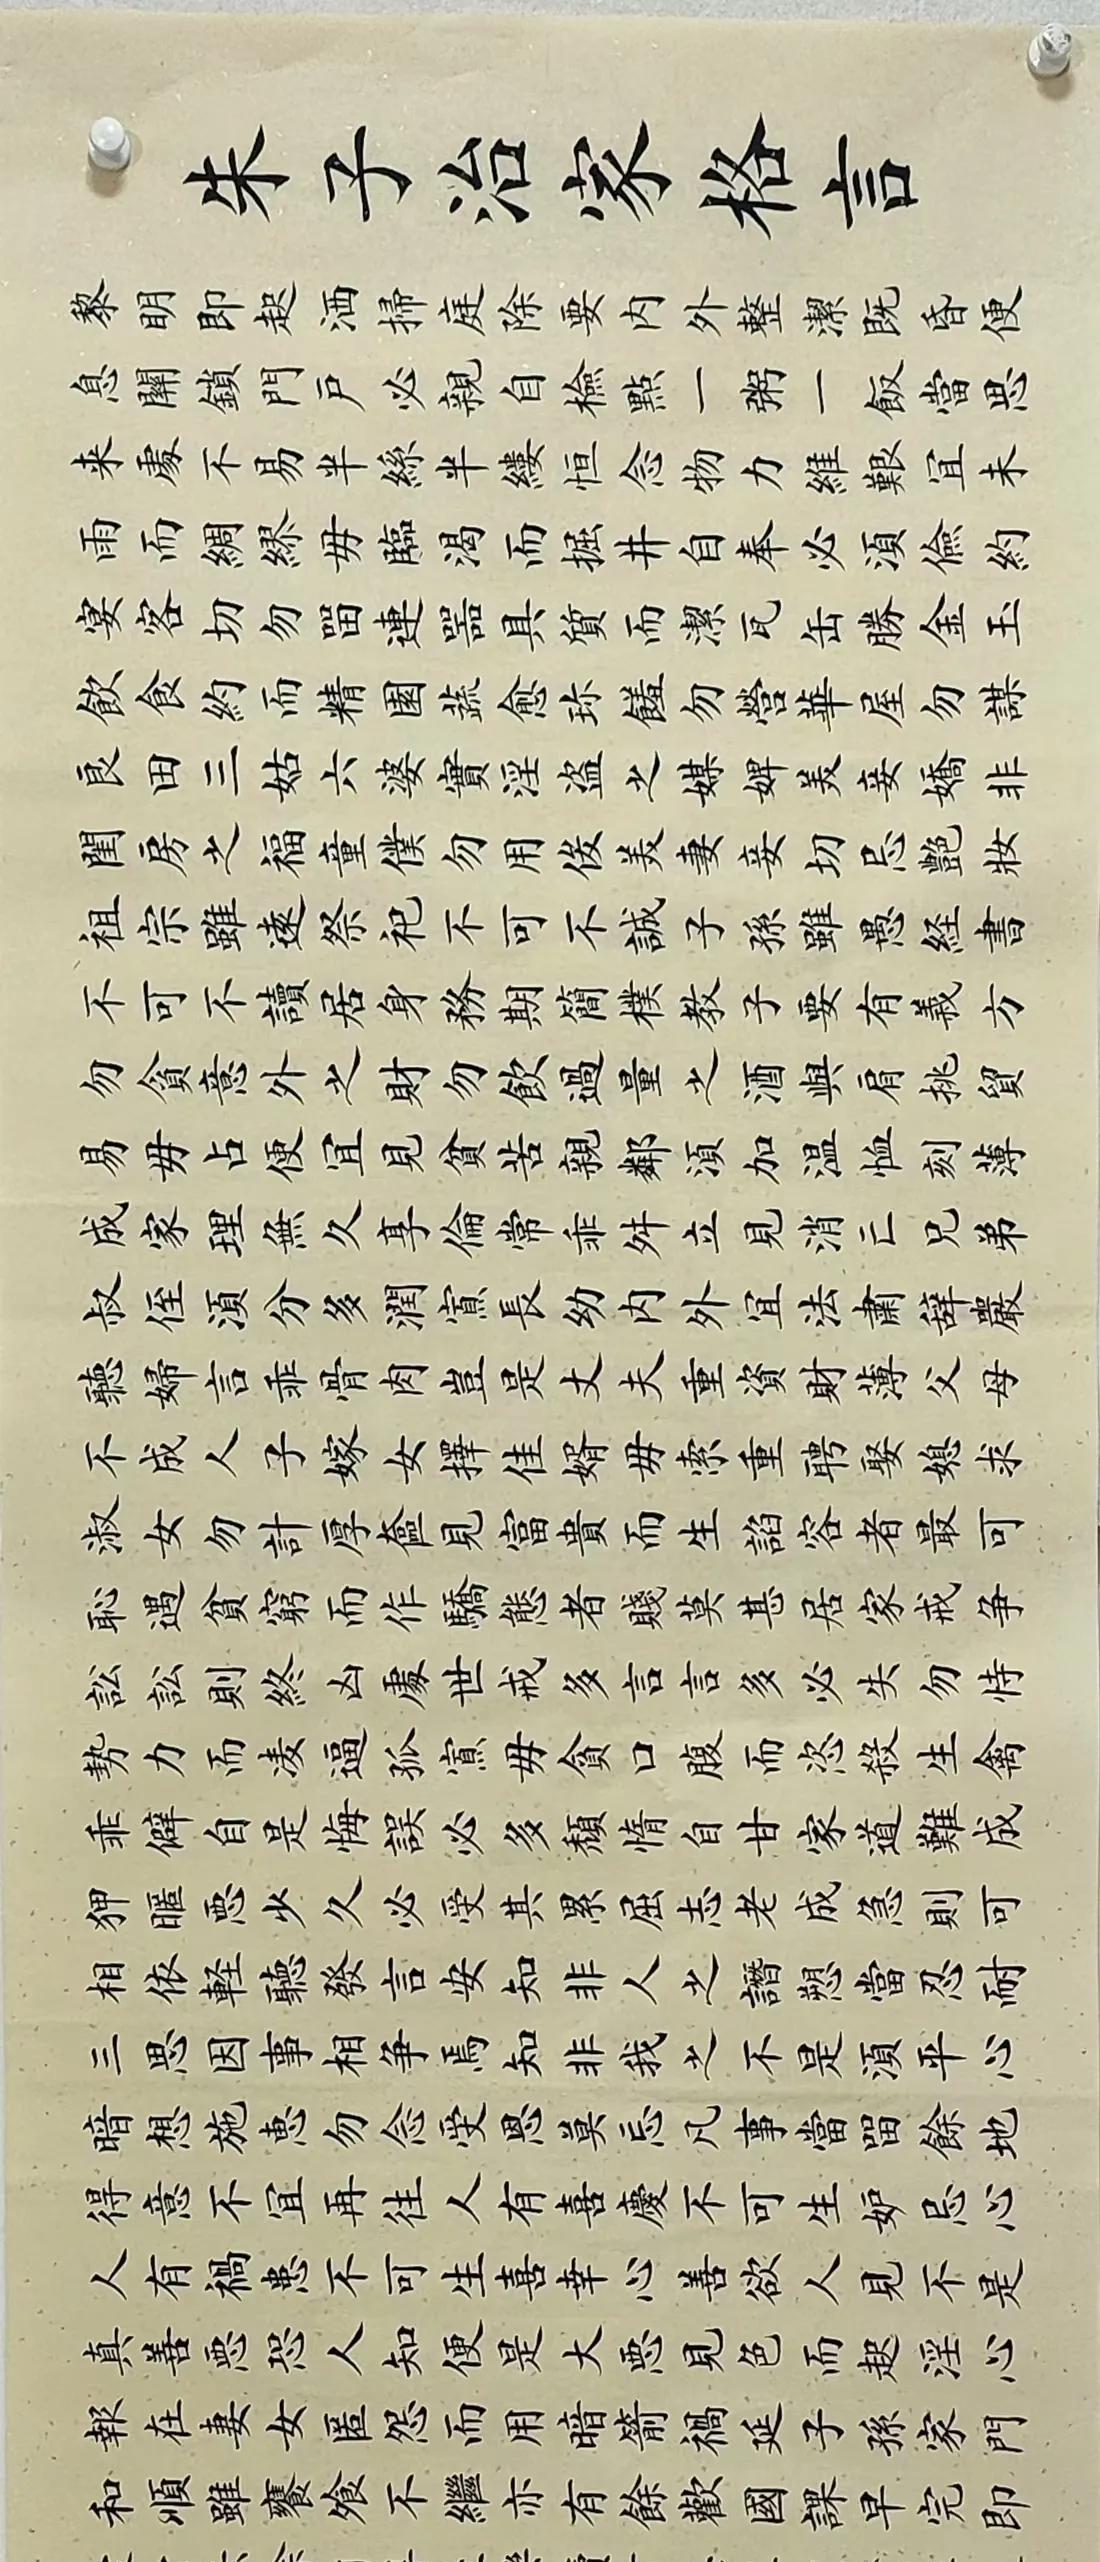 朱子治家格言
黎明即起洒掃庭除要内外整潔既昏便
息關鎖門戶必親自檢點一粥一飯當思
来處不易半絲半縷恒念物力維艱宜未
雨而綢繆毋臨渴而掘井自奉必須儉約
宴客切勿留連器具質而潔瓦缶勝金玉
飲食約而精園蔬愈珍饈勿營華屋勿謀
良田三姑六婆實淫盗之媒婢美妾嬌非
閨房之福童僕勿用俊美妻妾切忌艷妝
祖宗雖遠祭祀不可不誠子孫雖愚経書
不可不讀居身務期簡樸教子要有義方
勿貪意外之財勿飲過量之酒與肩挑貿
易毋占便宜見貧苦親鄰須加温恤刻薄
成家理無久享倫常乖舛立見消亡兄弟
叔侄須分多潤寡長幼内外宜法肅辭嚴
聽婦言乖骨肉豈是丈夫重資財薄父母
不成人子嫁女擇佳婿毋索重聘娶媳求
淑女勿計厚奩見富貴而生諂容者最可
恥遇貧窮而作驕態者賤莫甚居家戒争
訟訟則終凶處世戒多言言多必失勿恃
勢力而凌逼孤寡毋貪口腹而恣殺生禽
乖僻自是悔誤必多頹惰自甘家道難成
狎暱惡少久必受其累屈志老成急則可
相依軽聽發言安知非人之譖愬當忍耐
三思因事相争焉知非我之不是須平心
暗想施恵勿念受恩莫忘凡事當留餘地
得意不宜再往人有喜慶不可生妒忌心
人有禍患不可生喜幸心善欲人見不是
真善惡恐人知便是大惡見色而起淫心
報在妻女匿怨而用暗箭禍延子孫家門
和順雖饔飧不繼亦有餘歡國課早完即